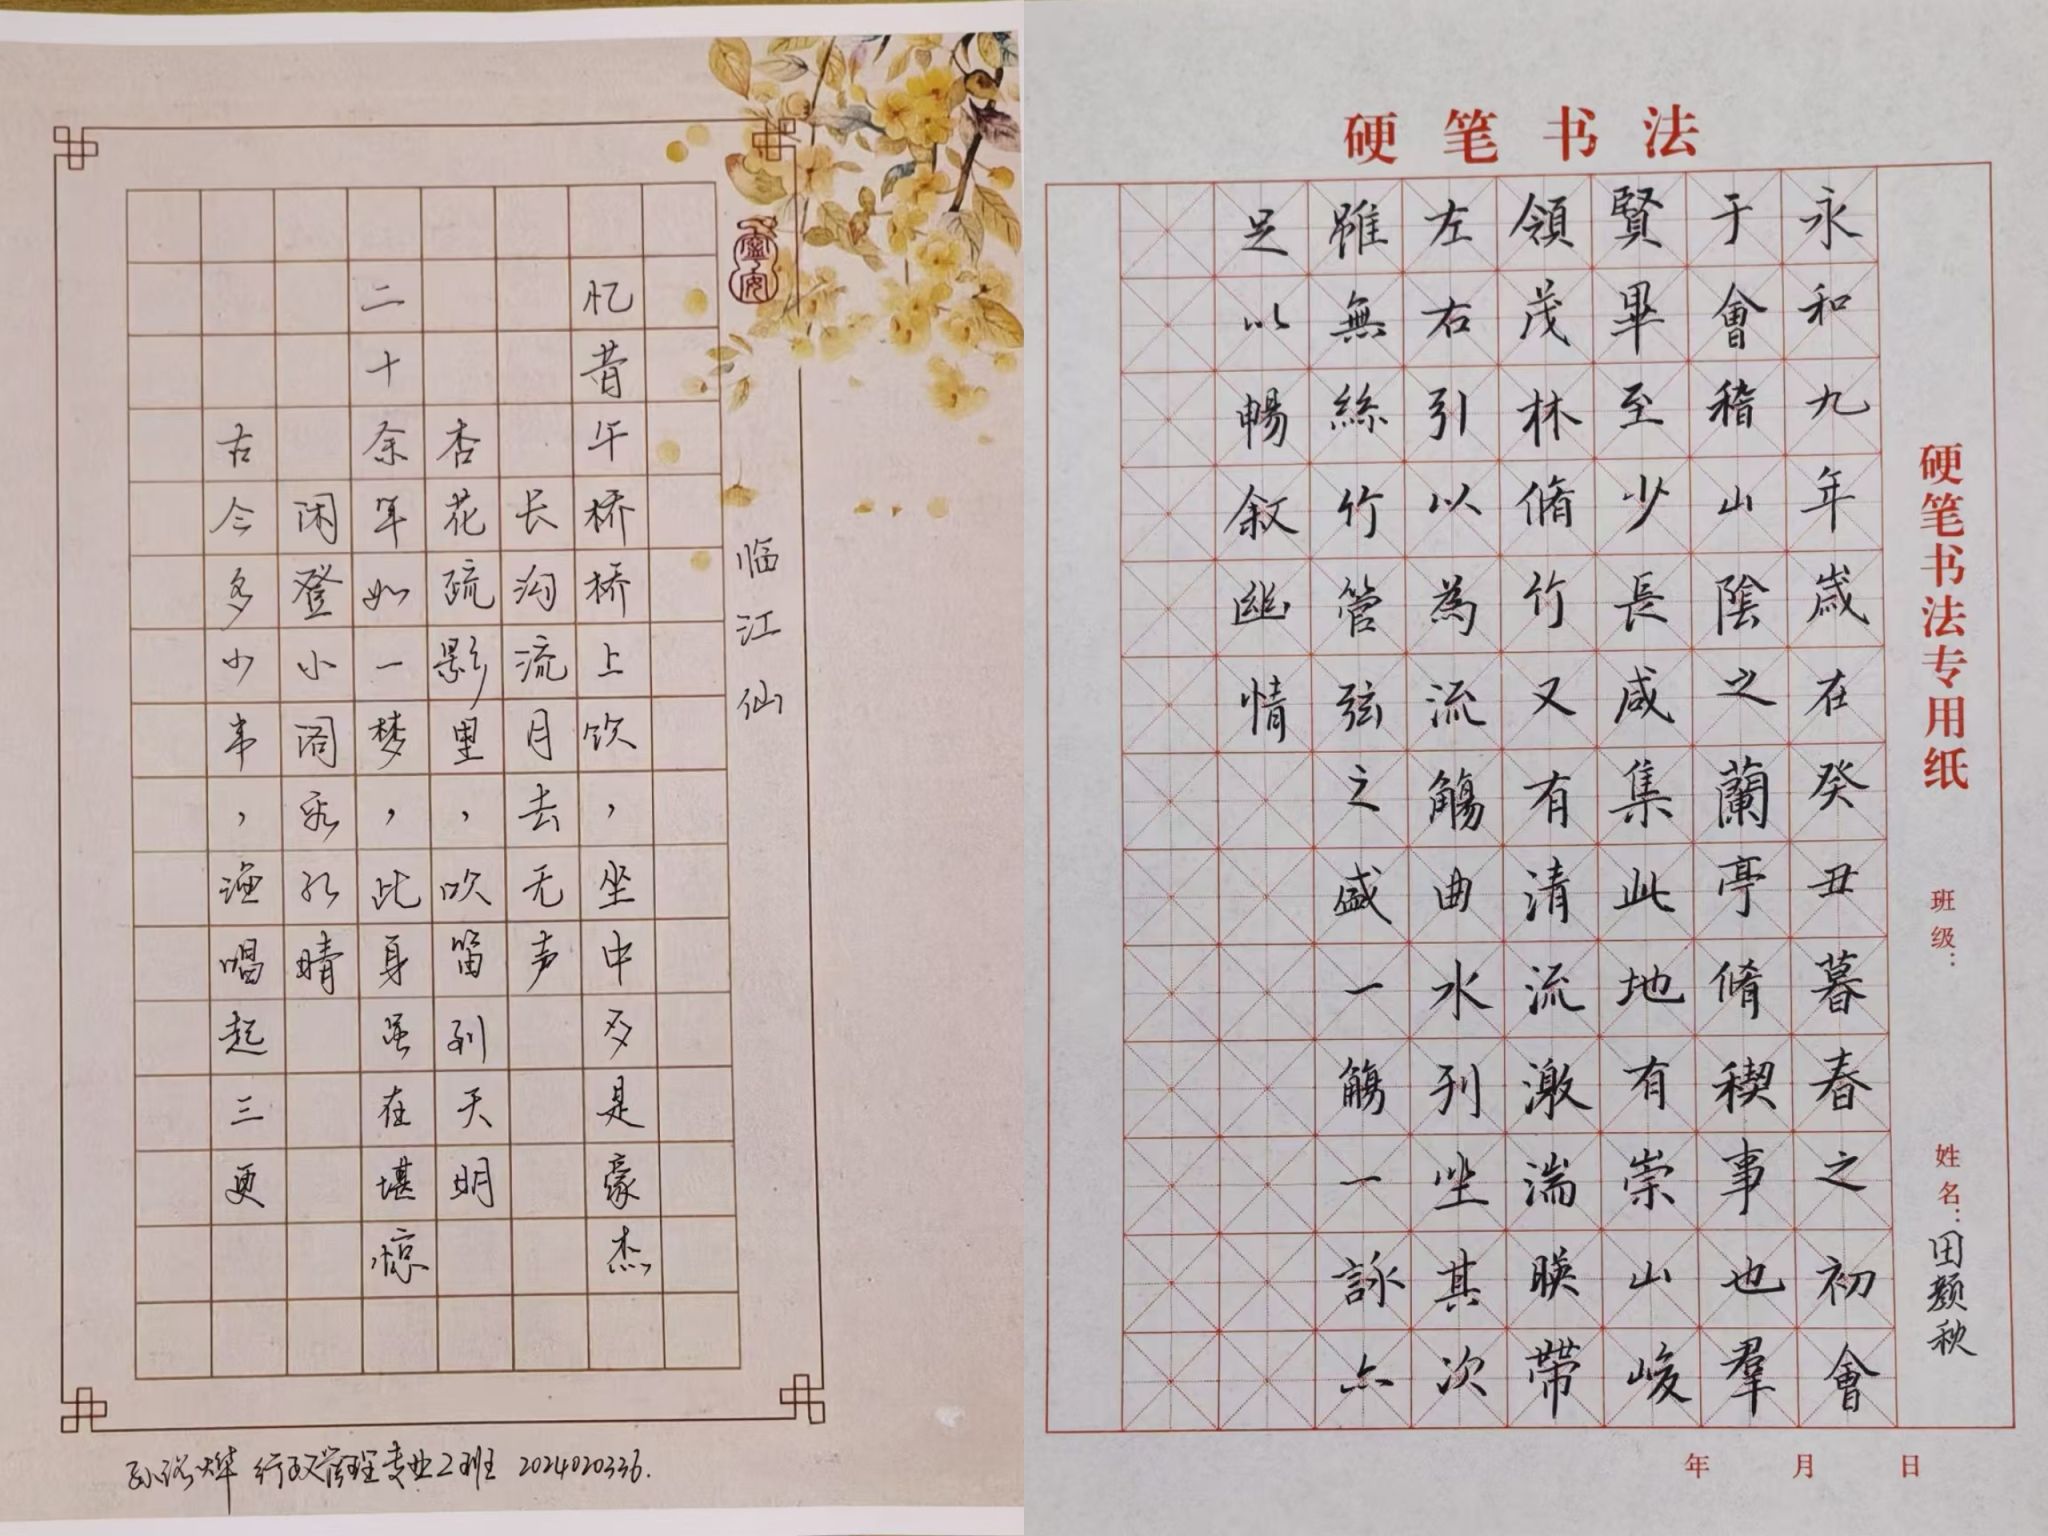 临江仙
忆昔午桥桥上饮，坐中多是豪杰
长沟流月去无声
杏花疏影里，吹笛到天明
二十余年如一梦，此身虽在堪惊
闲登小阁看新晴
古今多少事，渔唱起三更
宁安
行政管理专业2班 2024020336.
硬笔书法
硬笔书法专用纸
班级：
姓名：田颜秋
永和九年歲在癸丑暮春之初會
于會稽山陰之蘭亭脩禊事也羣
賢畢至少長咸集此地有崇山峻
領茂林脩竹又有清流激湍暎帶
左右引以為流觴曲水列坐其次
雖無絲竹管弦之盛一觴一詠亦
足以暢敘幽情
年 月 日